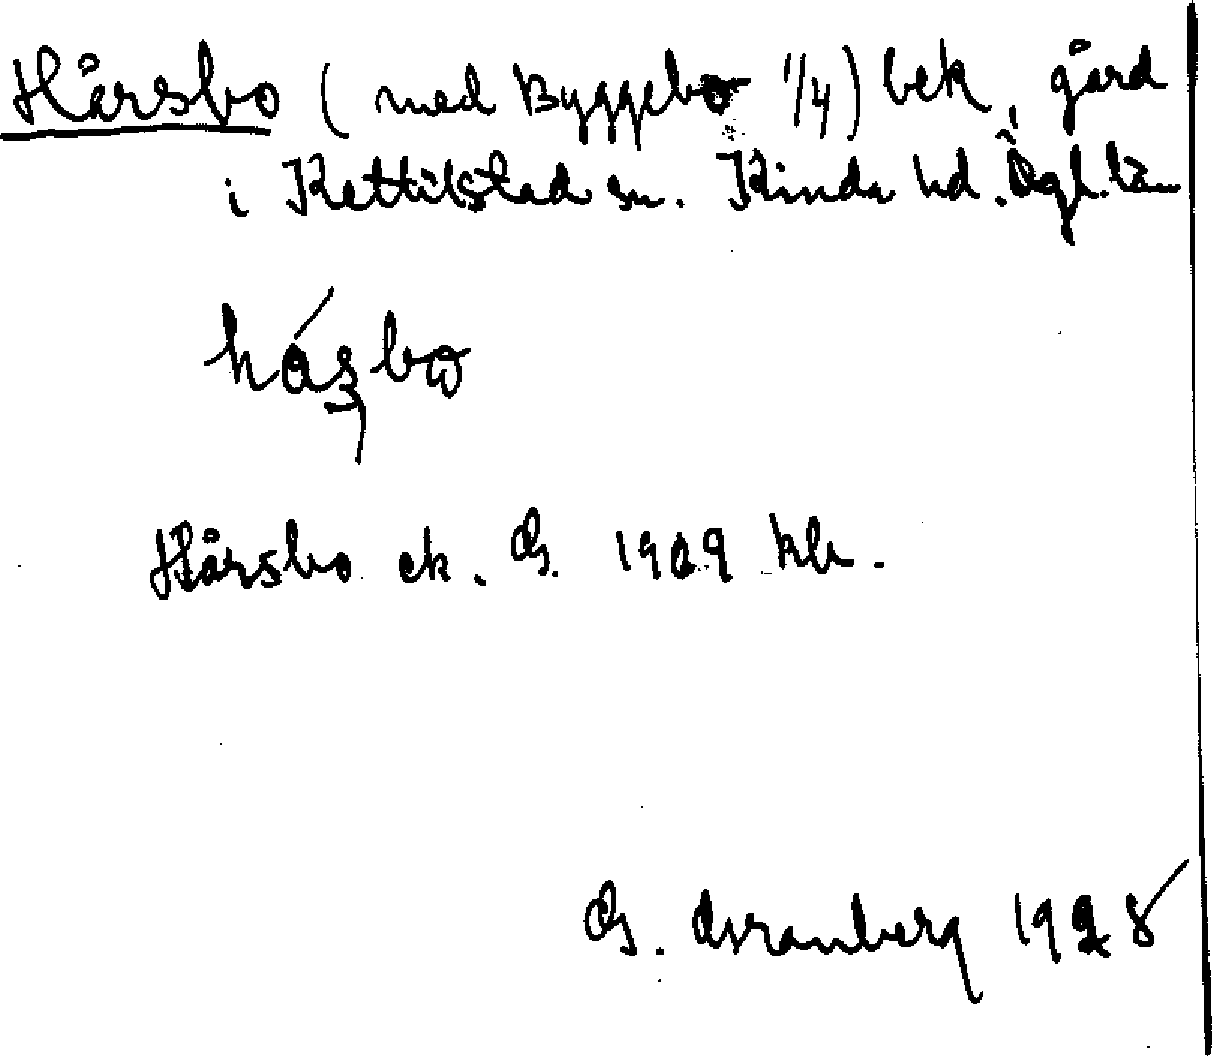 Hårsbo (med Byggebo 1/4) bek. gård
i Kettilstad sn. Kinda hd. Ögl. län
Hårsbo ek. G. 1909 kbr.
G. Granberg 1928